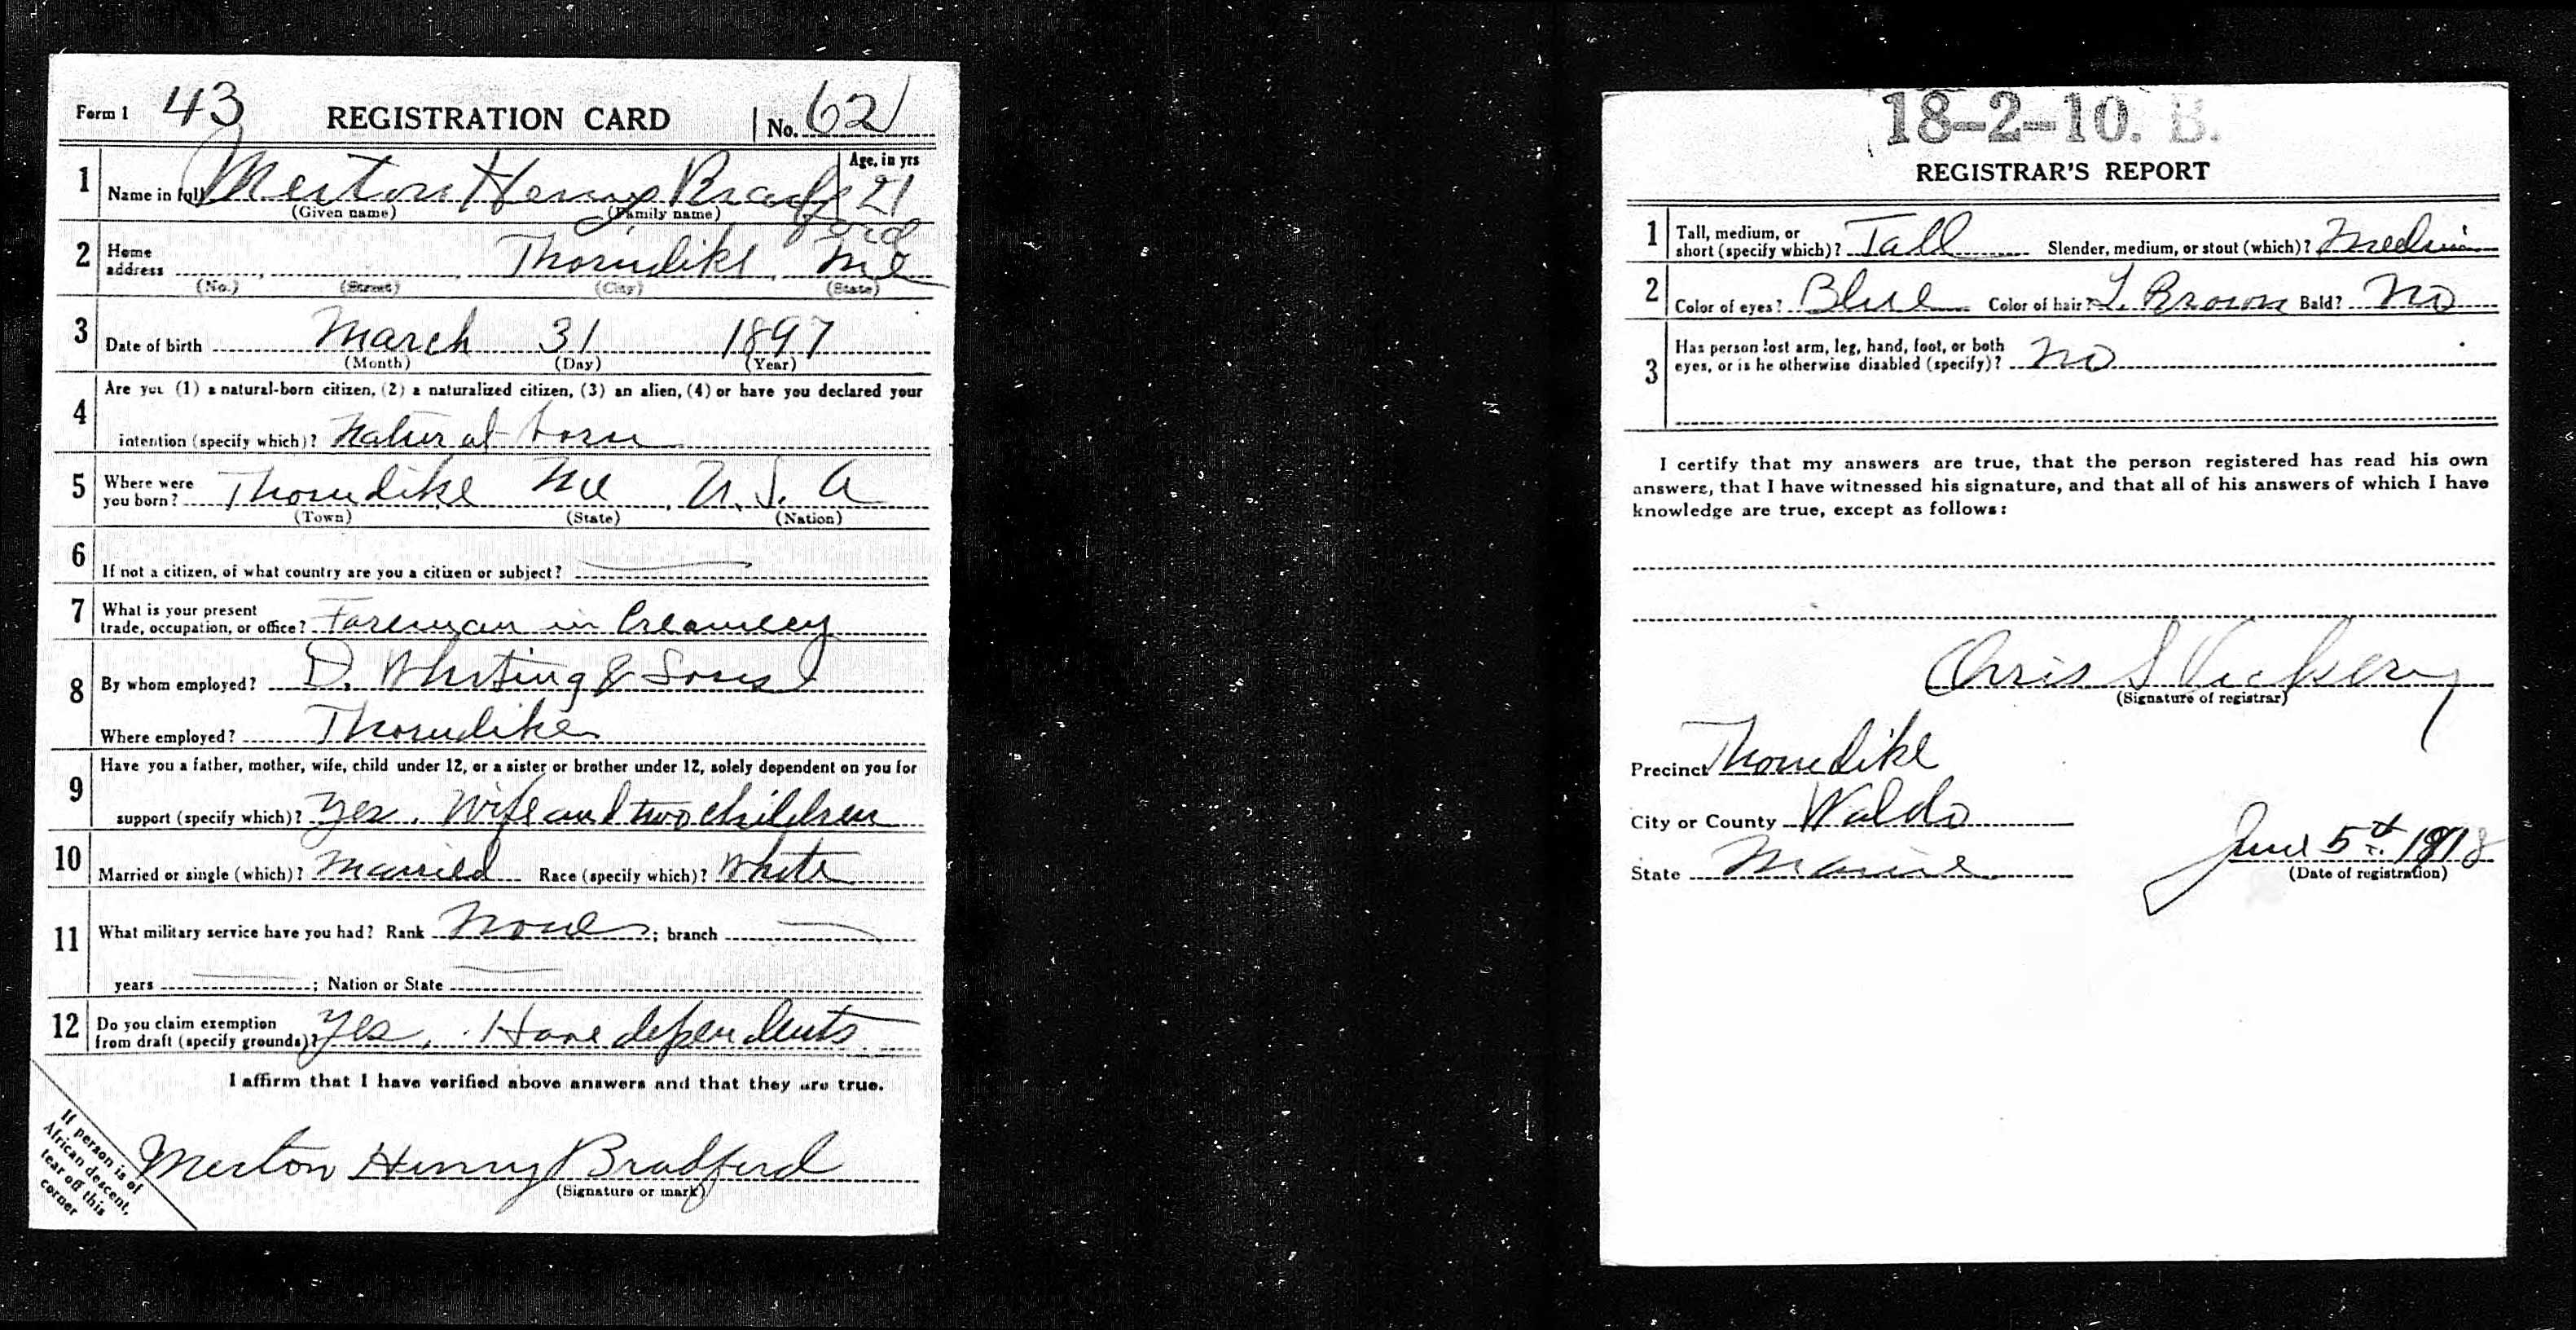 Form 1 43 REGISTRATION CARD No. 62
1 Name in full Merton Henry Bradford Age, in yrs 21
(Given name) (Family name)
2 Home address Thorndike Me
(No.) (Street) (City) (State)
3 Date of birth March 31 1897
(Month) (Day) (Year)
4 Are you (1) a natural-born citizen, (2) a naturalized citizen, (3) an alien, (4) or have you declared your
intention (specify which)? Natural born
5 Where were you born? Thorndike Me U.S.A
(Town) (State) (Nation)
6 If not a citizen, of what country are you a citizen or subject?
7 What is your present trade, occupation, or office? Foreman in Creamery
8 By whom employed? D. Whiting & Sons
Where employed? Thorndike
9 Have you a father, mother, wife, child under 12, or a sister or brother under 12, solely dependent on you for
support (specify which)? Yes. Wife and two children
10 Married or single (which)? Married Race (specify which)? White
11 What military service have you had? Rank None; branch
years ; Nation or State
12 Do you claim exemption from draft (specify grounds)? Yes, Have dependents
I affirm that I have verified above answers and that they are true.
Merton Henry Bradford
(Signature or mark)
If person is of
African descent,
tear off this
corner
18-2-10. B.
REGISTRAR'S REPORT
1 Tall, medium, or short (specify which)? Tall Slender, medium, or stout (which)? Medium
2 Color of eyes? Blue Color of hair? L. Brown Bald? No
3 Has person lost arm, leg, hand, foot, or both
eyes, or is he otherwise disabled (specify)? No
I certify that my answers are true, that the person registered has read his own
answers, that I have witnessed his signature, and that all of his answers of which I have
knowledge are true, except as follows:
Orris S Vickery
(Signature of registrar)
Precinct Thorndike
City or County Waldo
State Maine
June 5th 1918
(Date of registration)